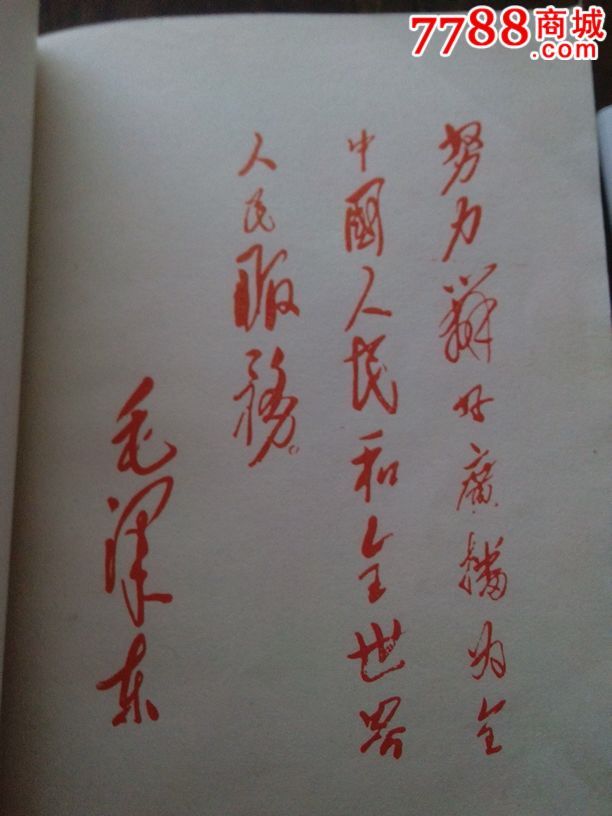 7788商城
.com
努力辦好廣播为全
中國人民和全世界
人民服務。
毛澤东